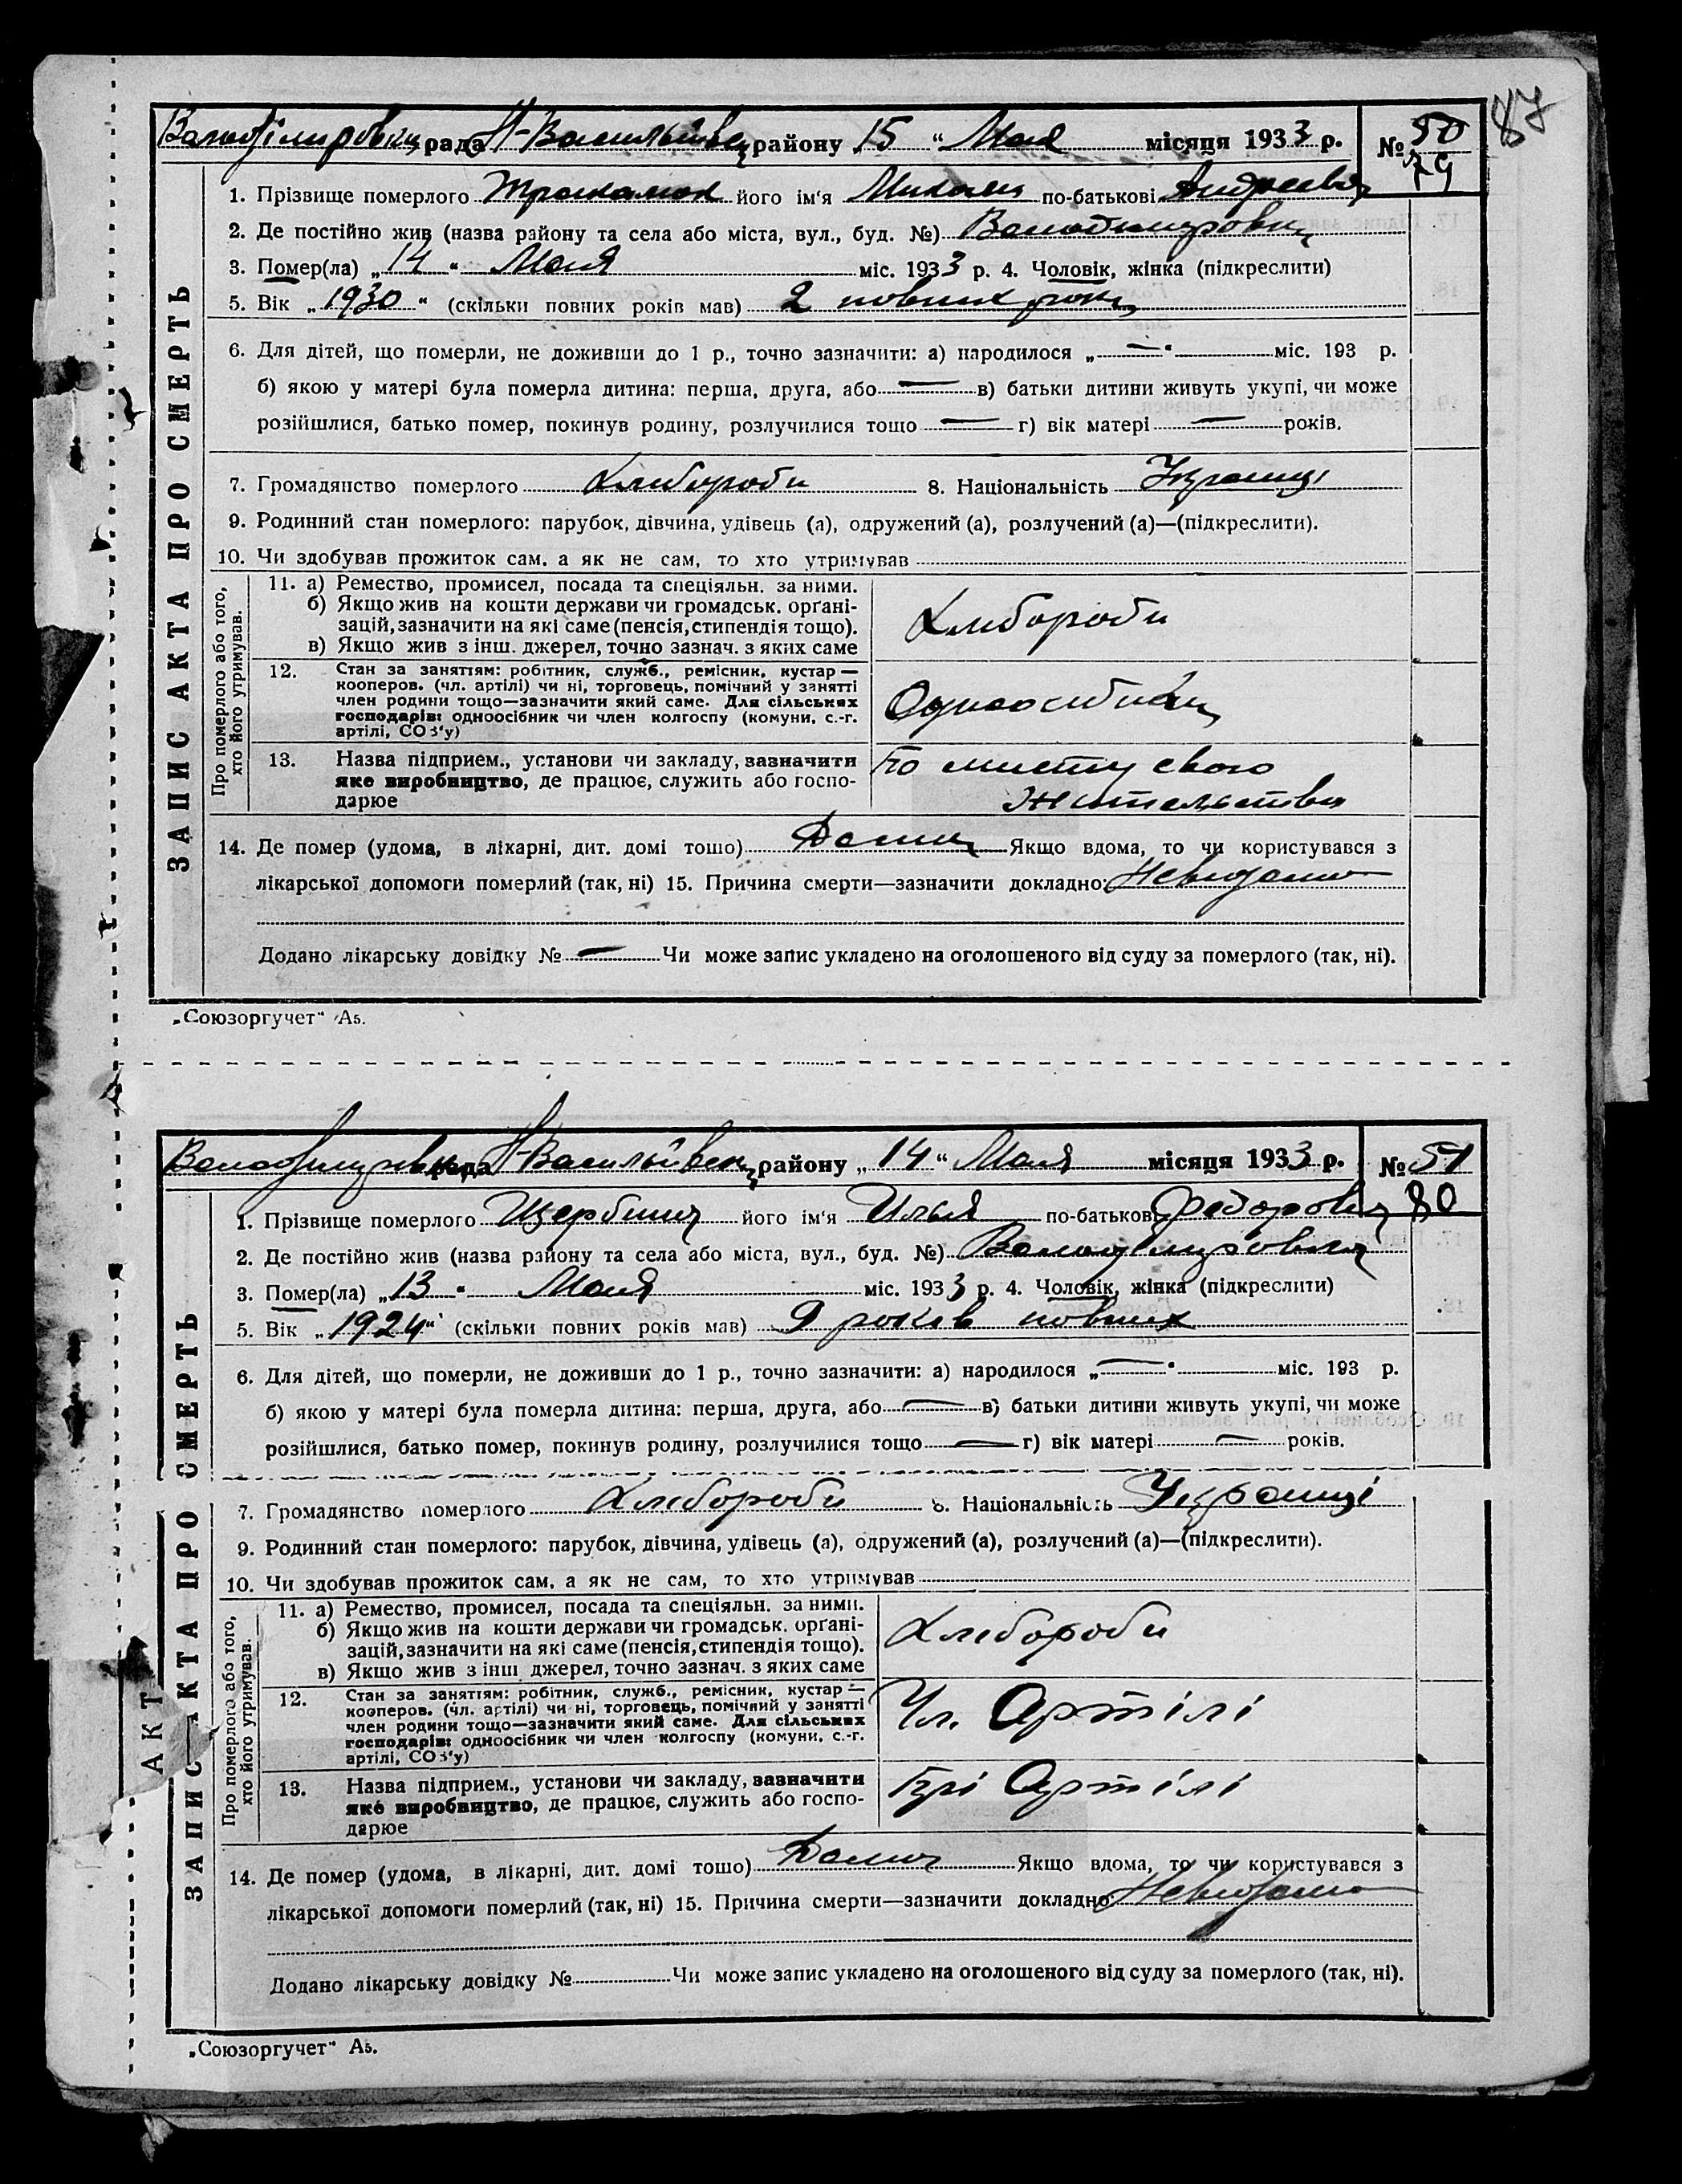 87
рада Н-Васильівськ району 15 " Мая місяця 1933 р. № 50
79
1. Прізвище померлого його ім'я Микола по-батькові Андреевич
2. Де постійно жив (назва району та села або міста, вул., буд. №) Володимировки
3. Помер(ла) „14" Мая міс. 1933 р. 4. Чоловік, жінка (підкреслити)
5. Вік „1930" (скільки повних років мав) 2 повних роки
6. Для дітей, що померли, не доживши до 1 р., точно зазначити: а) народилося „—" міс. 193 р.
б) якою у матері була померла дитина: перша, друга, або — в) батьки дитини живуть укупі, чи може
розійшлися, батько помер, покинув родину, розлучилися тощо — г) вік матері — років.
7. Громадянство померлого Хлібороби 8. Національність Українці
9. Родинний стан померлого: парубок, дівчина, удівець (а), одружений (а), розлучений (а)—(підкреслити).
10. Чи здобував прожиток сам, а як не сам, то хто утримував
ЗАПИС АКТА ПРО СМЕРТЬ
Про померлого або того,
хто його утримував.
11. а) Ремество, промисел, посада та спеціяльн. за ними.
б) Якщо жив на кошти держави чи громадськ. орґані-
зацій, зазначити на які саме (пенсія, стипендія тощо).
в) Якщо жив з інш. джерел, точно зазнач. з яких саме
Хлібороби
12. Стан за заняттям: робітник, служб., ремісник, кустар—
кооперов. (чл. артілі) чи ні, торговець, помічний у занятті
член родини тощо—зазначити який саме. Для сільських
господарів: одноосібник чи член колгоспу (комуни, с.-г.
артілі, СОЗ'у)
13. Назва підприєм., установи чи закладу, зазначити
яке виробництво, де працює, служить або госпо-
дарює
По місту свого
жительства
14. Де помер (удома, в лікарні, дит. домі тощо) Дома Якщо вдома, то чи користувався з
лікарської допомоги померлий (так, ні) 15. Причина смерти—зазначити докладно: Невідомо
Додано лікарську довідку № — Чи може запис укладено на оголошеного від суду за померлого (так, ні).
„Союзоргучет" А5.
рада Н-Васильівськ району „14" Мая місяця 1933 р. № 51
80
1. Прізвище померлого Щербина його ім'я Илья по-батькові Федорович
2. Де постійно жив (назва району та села або міста, вул., буд. №) Володимировка
3. Помер(ла) „13" Мая міс. 1933 р. 4. Чоловік, жінка (підкреслити)
5. Вік „1924" (скільки повних років мав) 9 років повних
6. Для дітей, що померли, не доживши до 1 р., точно зазначити: а) народилося „—" міс. 193 р.
б) якою у матері була померла дитина: перша, друга, або — в) батьки дитини живуть укупі, чи може
розійшлися, батько помер, покинув родину, розлучилися тощо — г) вік матері — років.
7. Громадянство померлого Хлібороби 8. Національність Українці
9. Родинний стан померлого: парубок, дівчина, удівець (а), одружений (а), розлучений (а)—(підкреслити).
10. Чи здобував прожиток сам, а як не сам, то хто утримував
ЗАПИС АКТА ПРО СМЕРТЬ
АКТ
Про померлого або того,
хто його утримував.
11. а) Ремество, промисел, посада та спеціяльн. за ними.
б) Якщо жив на кошти держави чи громадськ. орґані-
зацій, зазначити на які саме (пенсія, стипендія тощо).
в) Якщо жив з інш джерел, точно зазнач. з яких саме
Хлібороби
12. Стан за заняттям: робітник, служб., ремісник, кустар—
кооперов. (чл. артілі) чи ні, торговець, помічний у занятті
член родини тощо—зазначити який саме. Для сільських
господарів: одноосібник чи член колгоспу (комуни, с.-г.
артілі, СОЗ'у)
Чл. Артілі
13. Назва підприєм., установи чи закладу, зазначити
яке виробництво, де працює, служить або госпо-
дарює
Прі Артілі
14. Де помер (удома, в лікарні, дит. домі тощо) Дома Якщо вдома, то чи користувався з
лікарської допомоги померлий (так, ні) 15. Причина смерти—зазначити докладно: Невідомо
Додано лікарську довідку № Чи може запис укладено на оголошеного від суду за померлого (так, ні).
„Союзоргучет" А5.